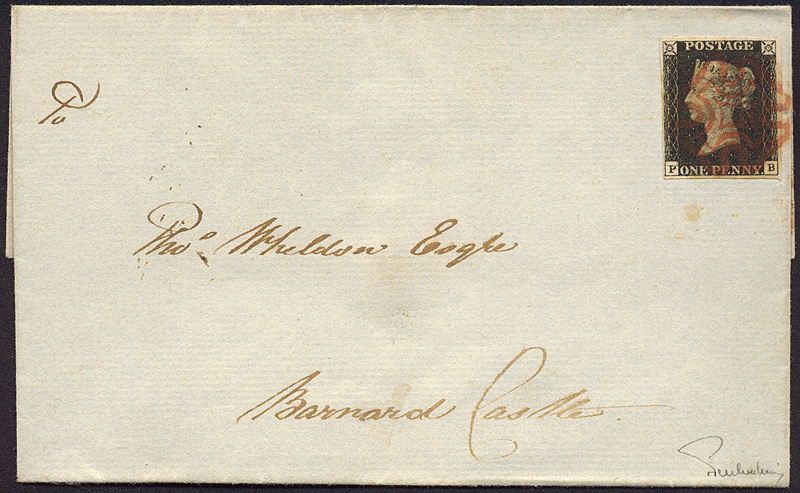 POSTAGE
P ONE PENNY B
To
Thos Wheldon Esqre
Barnard Castle